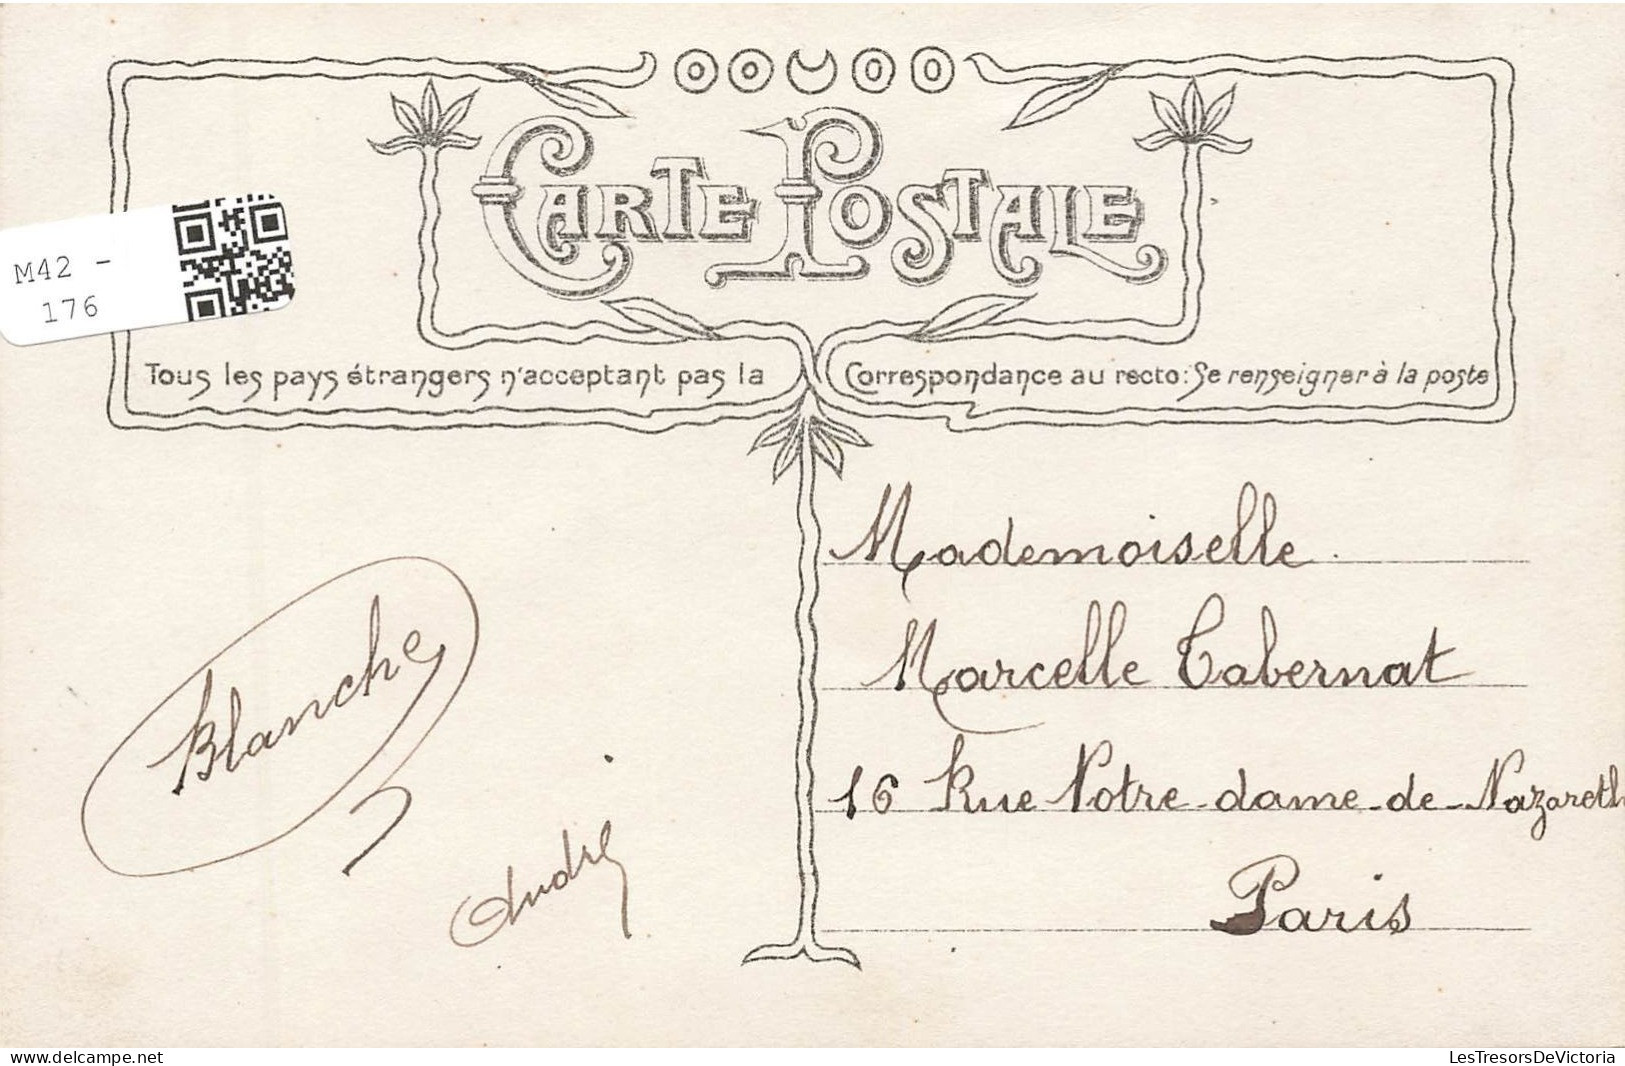 CARTE POSTALE
M42 -
176
Tous les pays étrangers n'acceptant pas la Correspondance au recto: Se renseigner à la poste
Mademoiselle
Marcelle Tabernat
16 Rue Notre-dame-de-Nazareth
Paris
Blanche
André
delcampe.net
LesTresorsDeVictoria